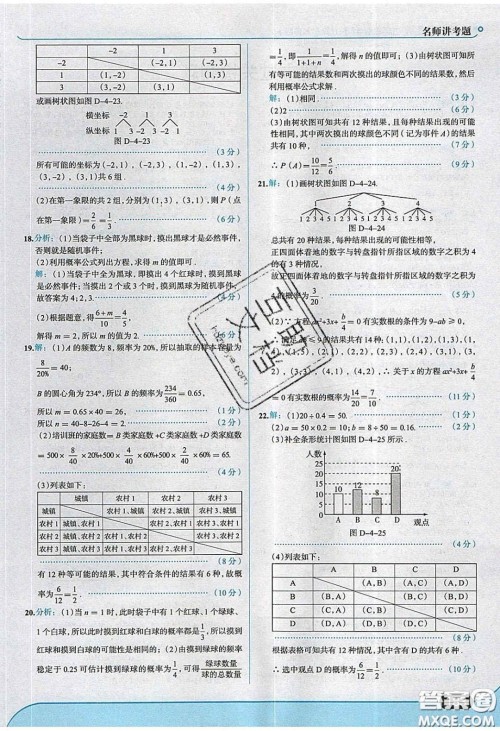 名师讲考题
-2 1 3
-2 (-2,1) (-2,3)
1 (1,-2) (1,3)
3 (3,-2) (3,1)
或画树状图如图 D-4-23.
横坐标 -2 1 3
纵坐标 1 3 -2 3 -2 1
图 D-4-23
(3 分)
所有可能的坐标为(-2,1),(-2,3),(1,-2),(1,3),
(3,-2),(3,1)共 6 组. (4 分)
(2)在第一象限的共 2 组,分别为(1,3),(3,1),则 P(点
在第一象限)=2/6=1/3. (6 分)
18.分析:(1)当袋子中全部为黑球时,摸出黑球才是必然事件,
否则就是随机事件;
(2)利用概率公式列出方程,求得 m 的值即可.
解:(1)当袋子中全为黑球,即摸出 4 个红球时,摸到黑球
是必然事件;当摸出 2 个或 3 个时,摸到黑球为随机事件,
故答案为 4;2,3. (4 分)
(2)根据题意,得(6+m)/10=4/5,
解得 m=2,所以 m 的值为 2. (6 分)
19.解:(1)A 的频数为 8,频率为 20%,所以抽取的样本容量为
8/20%=40;
B 的圆心角为 234°,所以 B 的频率为234/360=0.65. (1 分)
所以 m=0.65×40=26, (1 分)
所以 n=40-8-26-4=2. (2 分)
(2)培训班的家庭数=B 类家庭数+C 类家庭数+D 类家庭数
(4 分)
(3)列表如下:
城镇 农村 1 农村 2 农村 3
城镇 城镇、农村 1 城镇、农村 2 城镇、农村 3
(8 分)
有 12 种等可能的结果,其中符合条件的结果有 6 种,故概
率为6/12=1/2. (10 分)
20.分析:(1)当 n=1 时,此时袋子中有 1 个红球、1 个绿球、
1 个白球,所以此时摸到红球和白球的概率都是1/3,所以摸到
红球和摸到白球的可能性是相同的;(2)由摸到绿球的频率
稳定于 0.25 可估计摸到绿球的概率为1/4,可得绿球数量/球的总数量
=1/4,即1/(1+1+n)=1/4,解得 n 的值即可;(3)由树状图可知所
有等可能的结果数和两次摸出的球颜色不同的结果数,然后
利用概率公式求解.
解:(1)相同. (3 分)
(2)2 (6 分)
(3)由树状图可知共有 12 种结果,且每种结果出现的可能
性相同,其中两次摸出的球颜色不同(记为事件 A)的结果
共有 10 种. (7 分)
∴ P(A)=10/12=5/6. (9 分)
21.解:(1)画树状图如图 D-4-24.
1 2 3 4
1 2 3 4 5 1 2 3 4 5 1 2 3 4 5 1 2 3 4 5
图 D-4-24
总共有 20 种结果,每种结果出现的可能性相等,
正四面体着地的数字与转盘指针所指区域的数字之积为 4
的有 3 种情况,
故正四面体着地的数字与转盘指针所指区域的数字之积为
4 的概率为3/20. (6 分)
=0 有实数根的概率为14/20=7/10. (11 分)
22.解:(1)20÷0.4=50. (1 分)
(2)a=50×0.2=10;b=8÷50=0.16. (2 分)
(3)补全条形统计图如图 D-4-25 所示.
人数
25
20
15
10
5
0
10 12 8 20
A B C D 观点
图 D-4-25
(4 分)
(4)列表如下:
A B C D
A (A,B) (A,C) (A,D)
B (B,A) (B,C) (B,D)
C (C,A) (C,B) (C,D)
D (D,A) (D,B) (D,C)
(8 分)
根据表格可知共有 12 种情况,其中含有 D 的共有 6 种.
∴ 选中观点 D 的概率为6/12=1/2. (10 分)
MXQE.COM